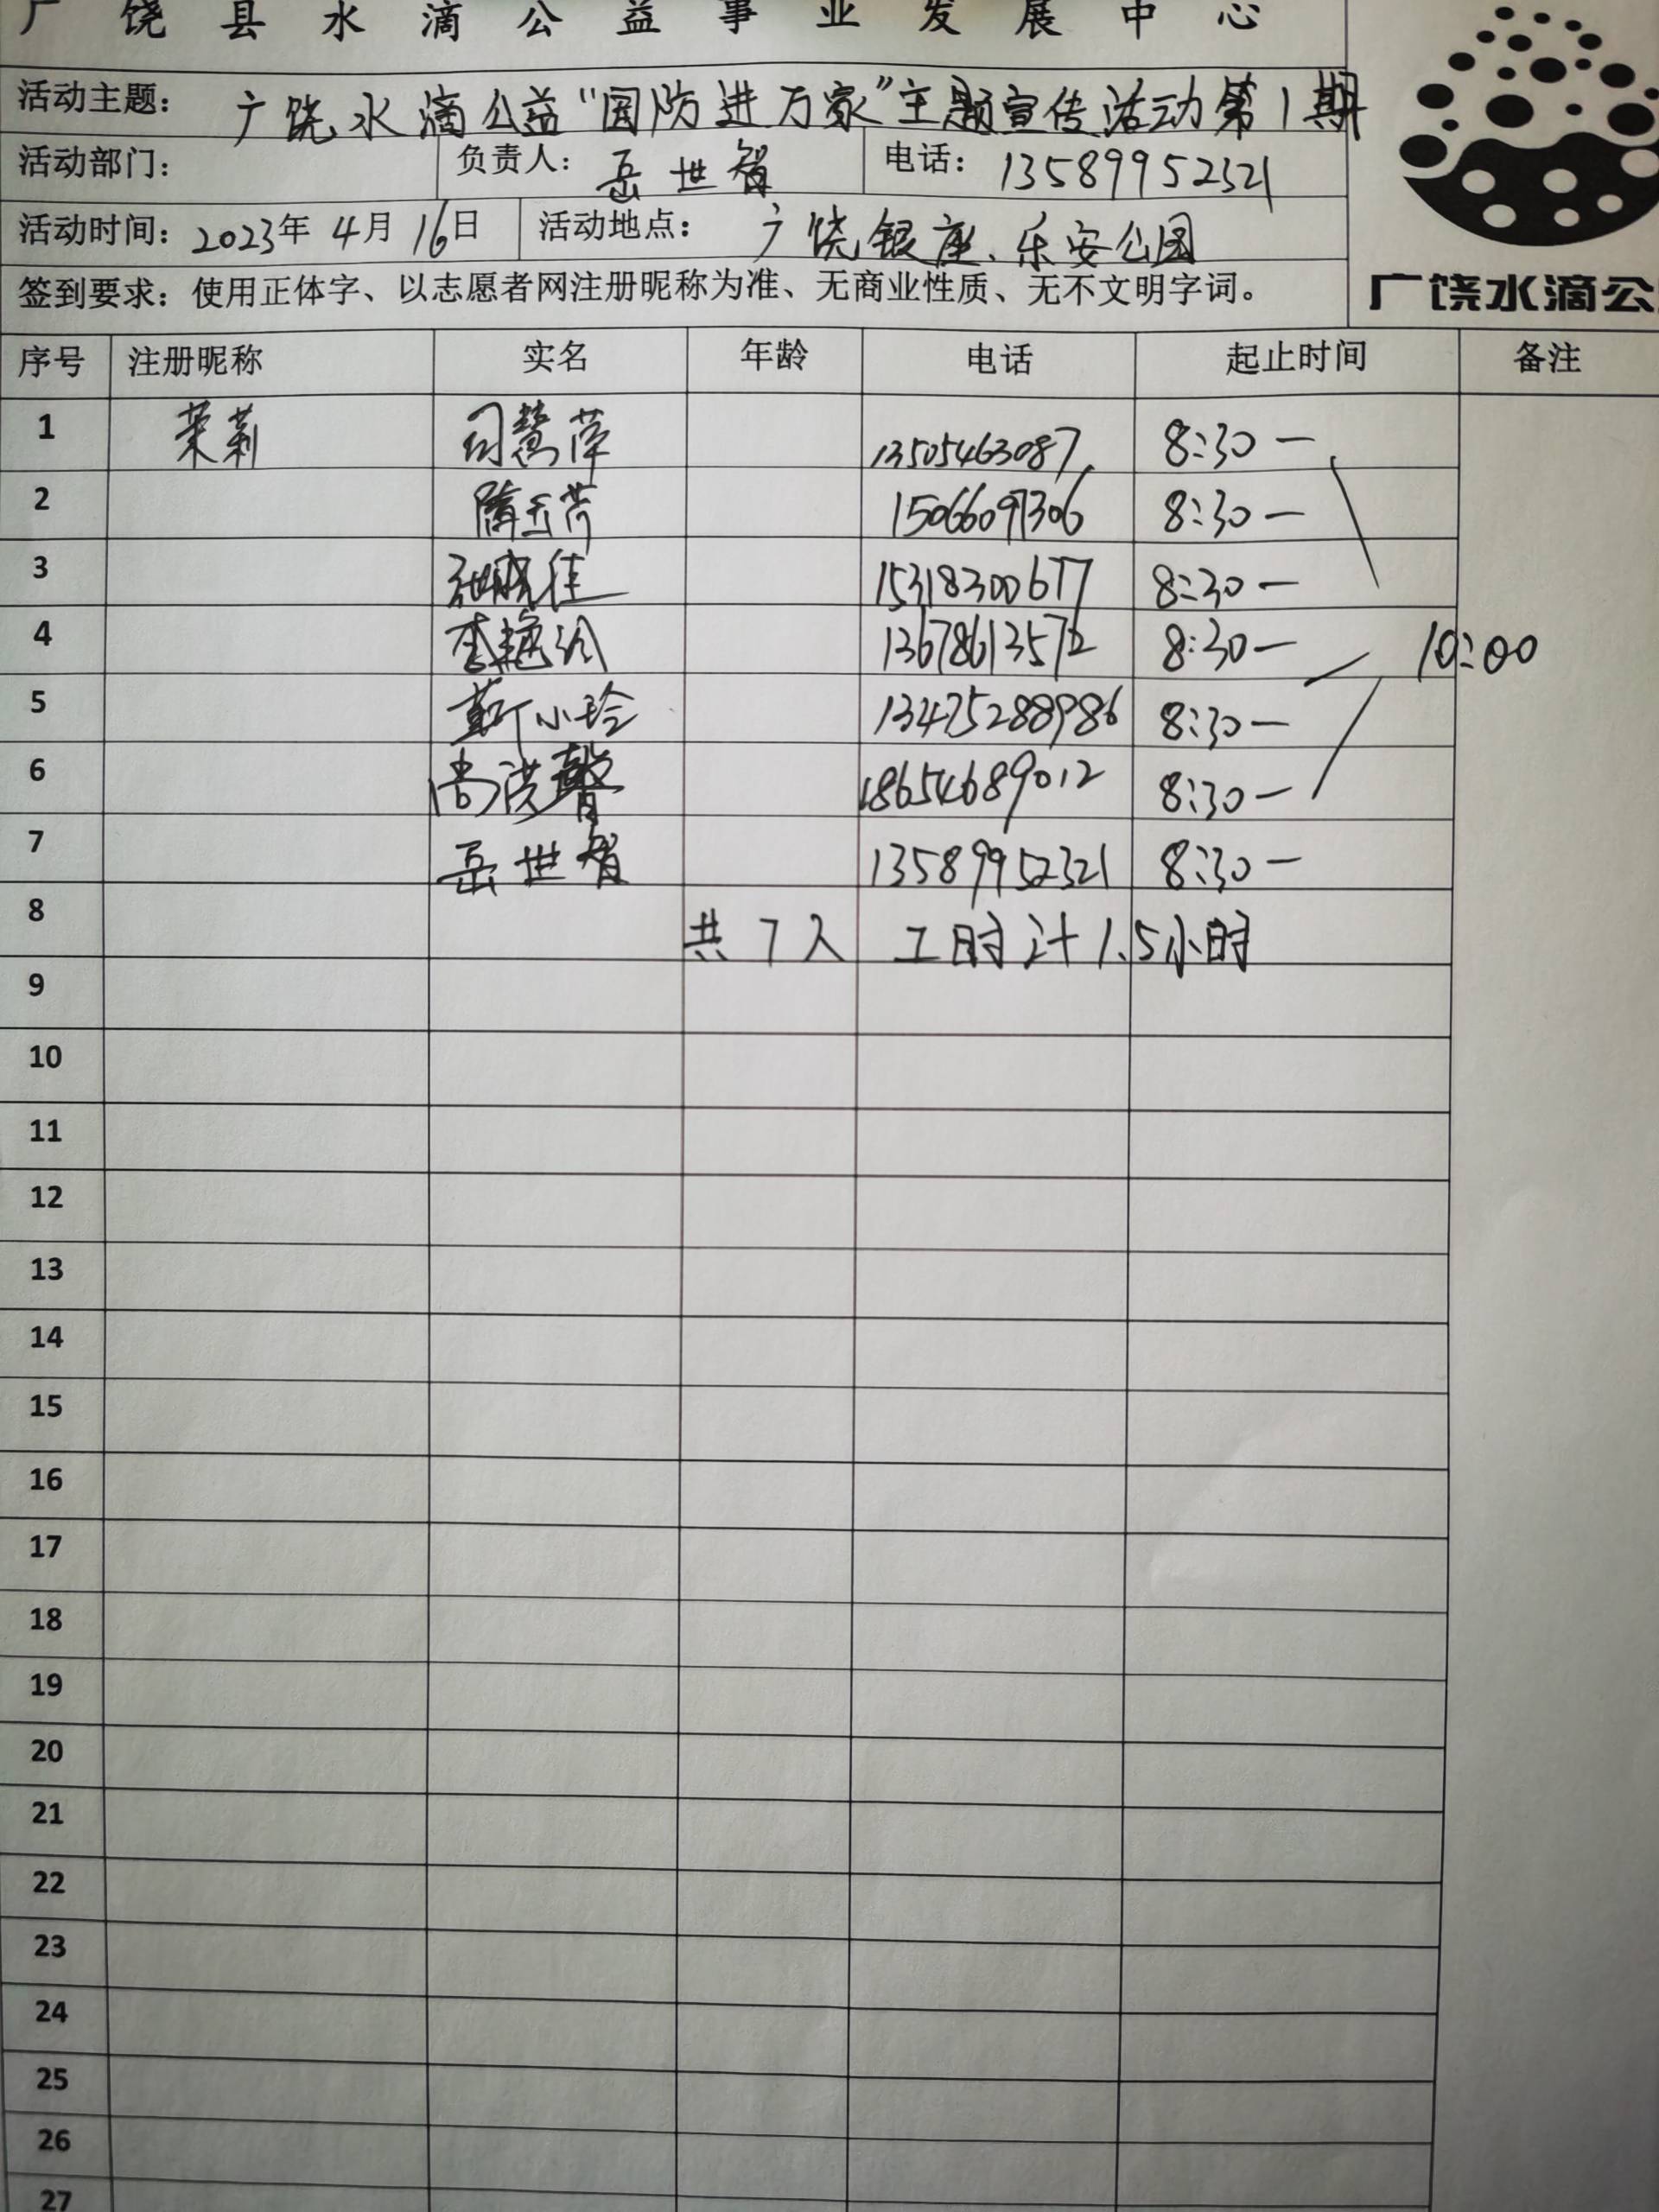 广饶县水滴公益事业发展中心
活动主题： 广饶水滴公益“国防进万家”主题宣传活动第1期
活动部门： 负责人： 岳世智 电话： 13589952321
活动时间：2023年 4月 16日 活动地点： 广饶银座、乐安公园
签到要求：使用正体字、以志愿者网注册昵称为准、无商业性质、无不文明字词。
广饶水滴公
序号 注册昵称 实名 年龄 电话 起止时间 备注
1 茉莉 司慧萍 13505463087 8:30一
2 隋玉芳 15066097306 8:30一
3 15318300677 8:30一
4 李艳 13678613572 8:30一 10:00
5 靳小玲 13475288986 8:30一
6 尚洪馨 18654689012 8:30一
7 岳世智 13589952321 8:30一
8 共7人 工时计1.5小时
9
10
11
12
13
14
15
16
17
18
19
20
21
22
23
24
25
26
27